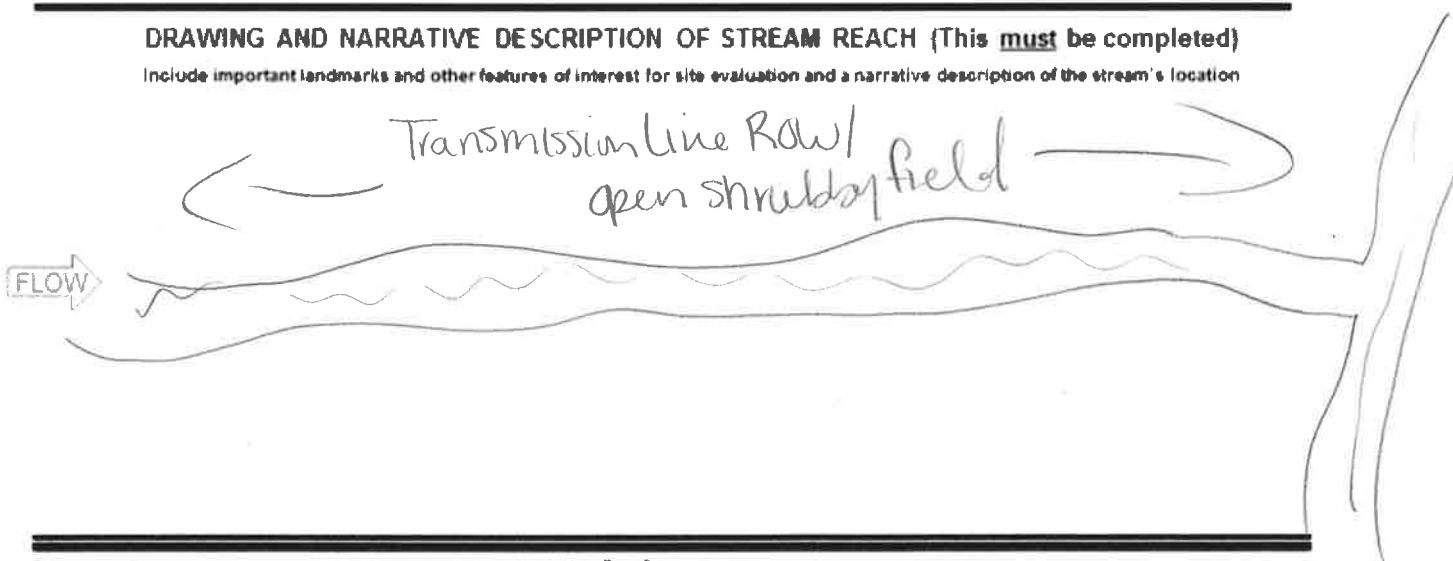 DRAWING AND NARRATIVE DESCRIPTION OF STREAM REACH (This must be completed)
Include important landmarks and other features of interest for site evaluation and a narrative description of the stream's location
Transmission Line ROW/
open shrubby field
FLOW